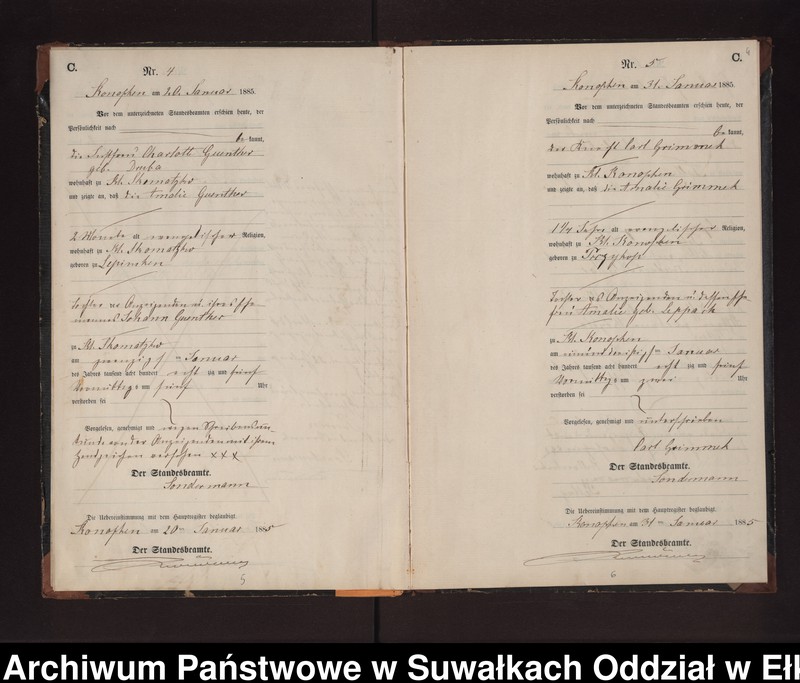 C.
Nr. 4
Konopken am 20. Januar 1885.
Vor dem unterzeichneten Standesbeamten erschien heute, der
Persönlichkeit nach
be kannt,
die Charlotte Guenther
geb.
wohnhaft zu Kl. Skomatzko
und zeigte an, daß die Amalie Guenther
2 Monate alt evangelischer Religion,
wohnhaft zu Kl. Skomatzko
geboren zu
Tochter der Anzeigenden u. ihres Ehe
mannes Johann Guenther
zu Kl. Skomatzko
am zwanzigsten Januar
des Jahres tausend acht hundert acht zig und fünf
Vormittags um fünf Uhr
verstorben sei
Vorgelesen, genehmigt und wegen Schreibensun
kunde von der Anzeigenden mit ihrem
Handzeichen versehen XXX
Der Standesbeamte.
Sondermann
Die Uebereinstimmung mit dem Hauptregister beglaubigt.
Konopken am 20ten Januar 1885
Der Standesbeamte.
5
C.
Nr. 5
Konopken am 31. Januar 1885.
Vor dem unterzeichneten Standesbeamten erschien heute, der
Persönlichkeit nach
be kannt,
der Knecht Carl Grimmek
wohnhaft zu Kl. Konopken
und zeigte an, daß die Amalie Grimmek
1 1/4 Jahr alt evangelischer Religion,
wohnhaft zu Kl. Konopken
geboren zu
Tochter des Anzeigenden u. dessen Ehe
frau Amalie geb.
zu Kl. Konopken
am einunddreißigsten Januar
des Jahres tausend acht hundert acht zig und fünf
Vormittags um zwei Uhr
verstorben sei
Vorgelesen, genehmigt und unterschrieben
Carl Grimmek
Der Standesbeamte.
Sondermann
Die Uebereinstimmung mit dem Hauptregister beglaubigt.
Konopken am 31ten Januar 1885
Der Standesbeamte.
6
Archiwum Państwowe w Suwałkach Oddział w Ełk